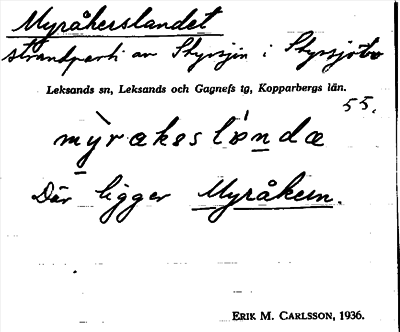 Myråkerslandet
strandparti av Styrsjön i Styrsjöbo
Leksands sn, Leksands och Gagnefs tg, Kopparbergs län.
55.
mỳrakəslò̢ndæ
Där ligger Myråkern.
ERIK M. CARLSSON, 1936.